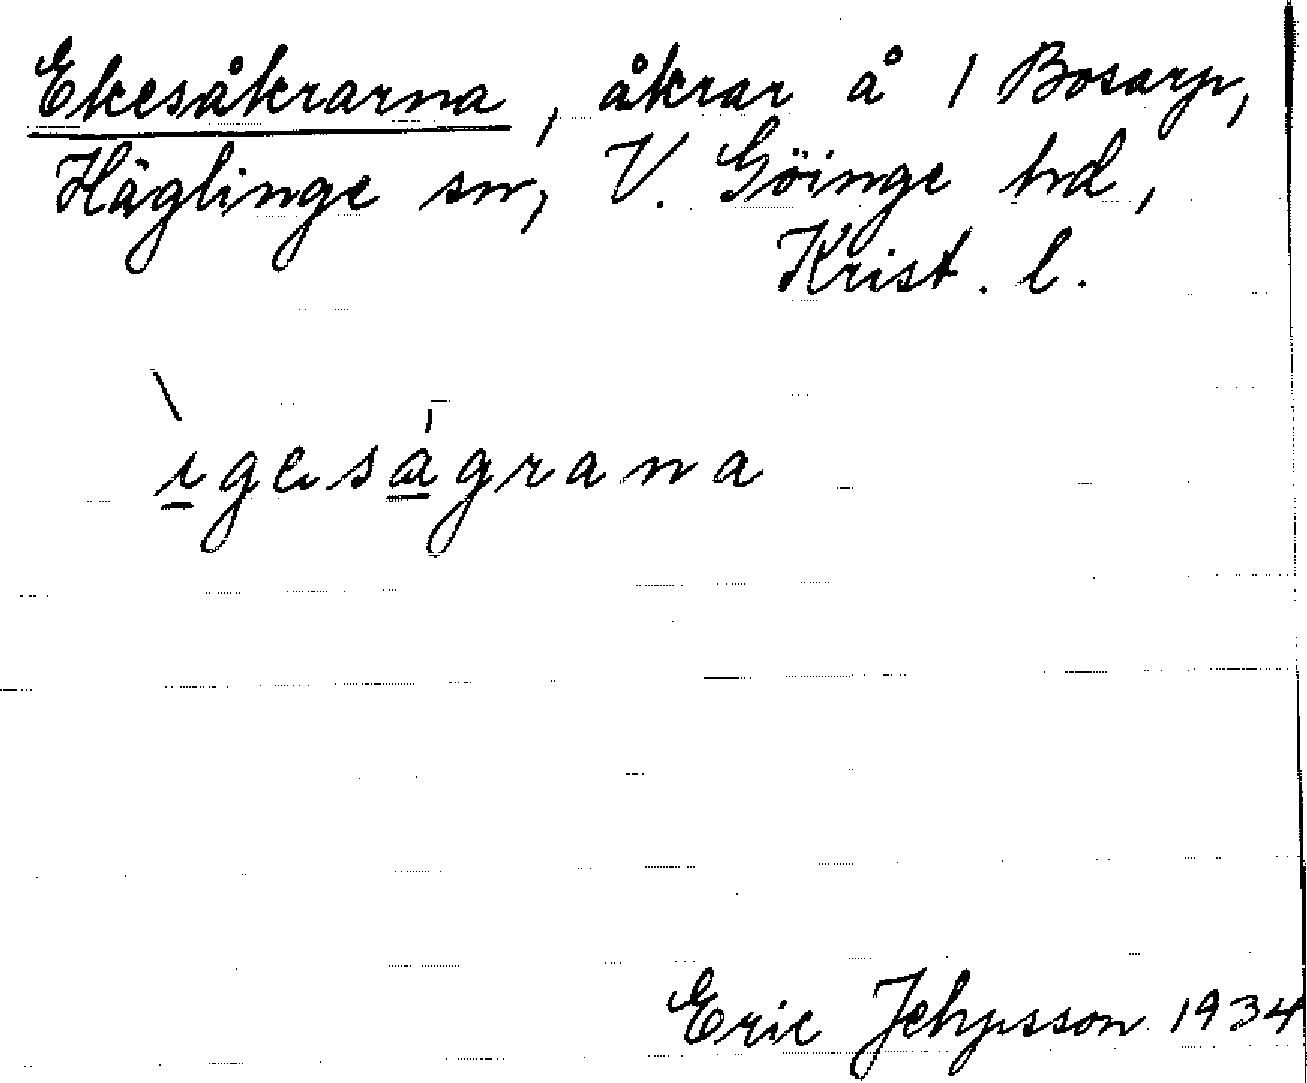 Ekesåkrarna, åkrar å 1 Bosarp,
Häglinge sn, V. Göinge hd,
Krist. l.
ı̀geságrana
Eric Jehpsson 1934